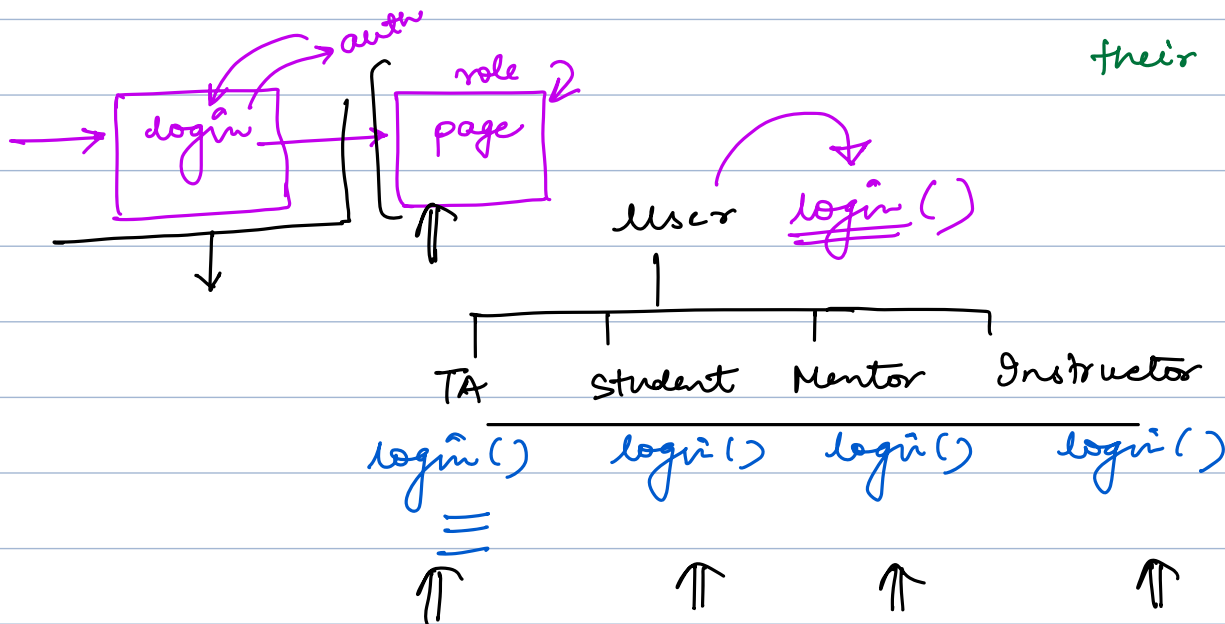 auth
their
role
login
page
User login()
TA Student Mentor Instructor
login() login() login() login()